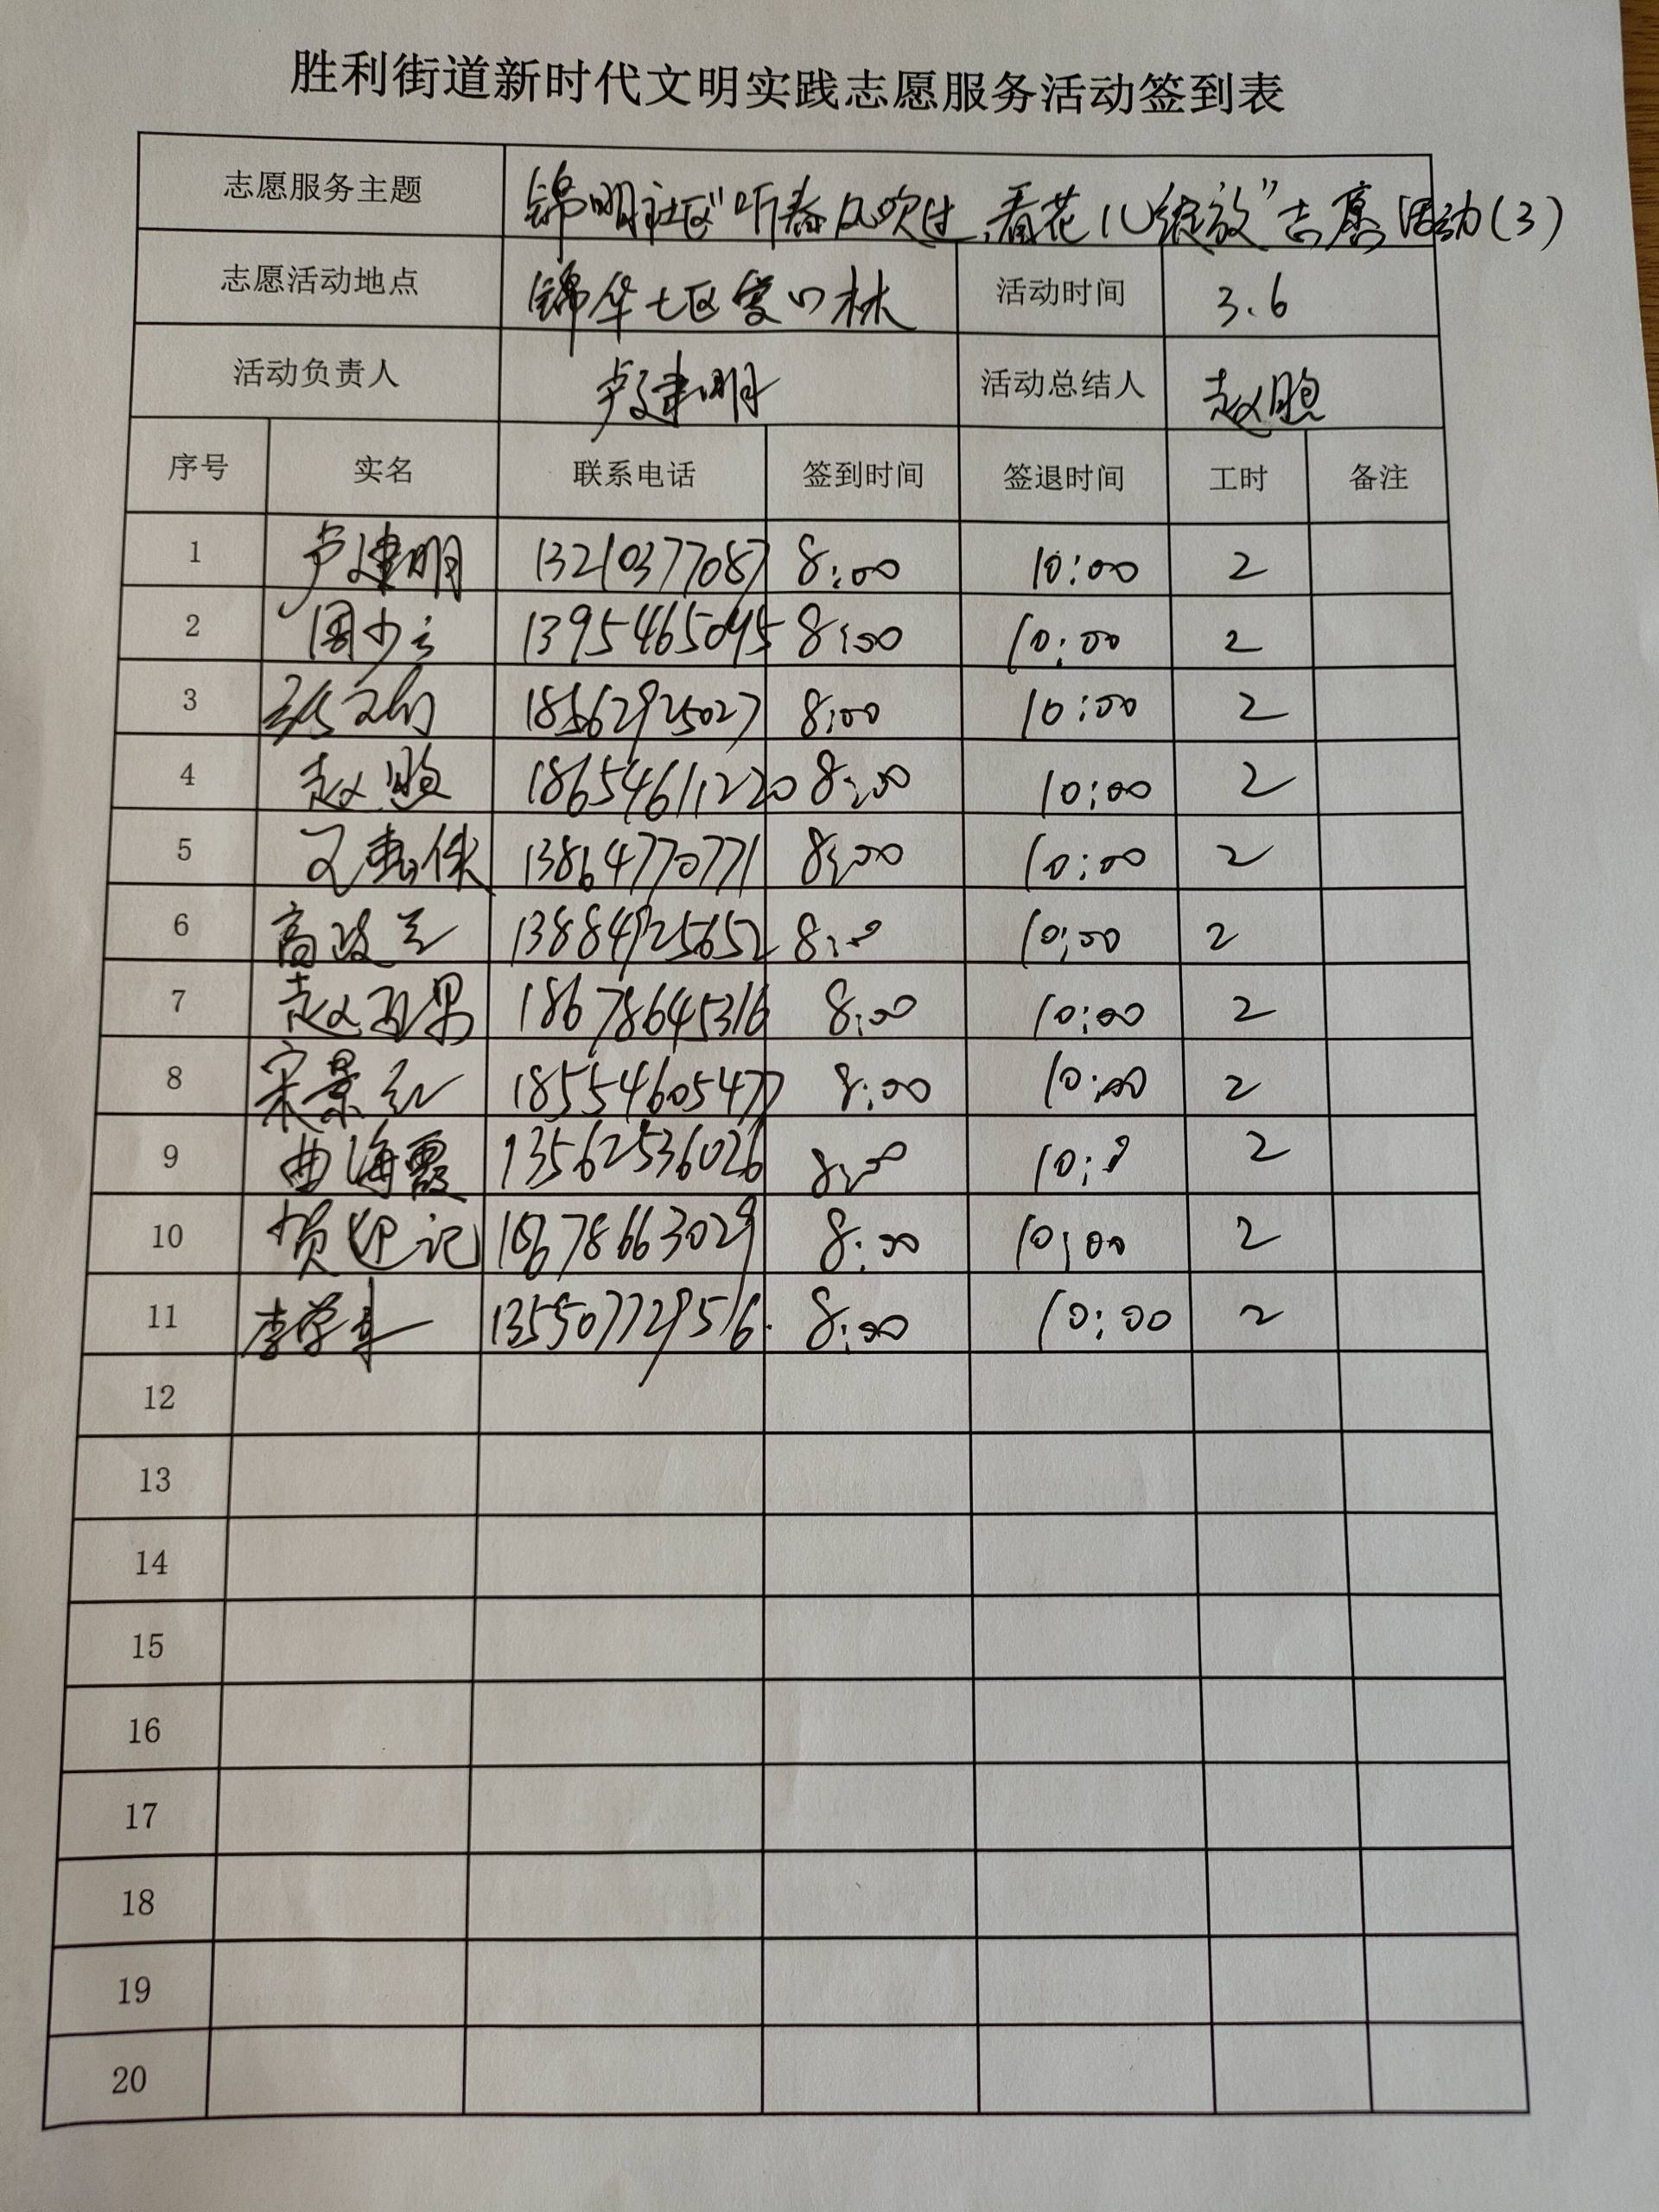 胜利街道新时代文明实践志愿服务活动签到表
志愿服务主题 锦明社区"听春风吹过,看花儿绽放"志愿活动(3)
志愿活动地点 锦华七区 林 活动时间 3.6
活动负责人 卢建明 活动总结人 赵煦
序号 实名 联系电话 签到时间 签退时间 工时 备注
1 卢建明 13210377087 8:00 10:00 2
2 周少云 13954650495 8:00 10:00 2
3 18562925027 8:00 10:00 2
4 赵煦 18654611220 8:00 10:00 2
5 13864770771 8:00 10:00 2
6 高改兰 13884925652 8:00 10:00 2
7 赵亚男 18678645316 8:00 10:00 2
8 宋景红 18554605477 8:00 10:00 2
9 曲海霞 13562536026 8:00 10:00 2
10 贺迎记 18678663029 8:00 10:00 2
11 李学车 135507729516 8:00 10:00 2
12
13
14
15
16
17
18
19
20